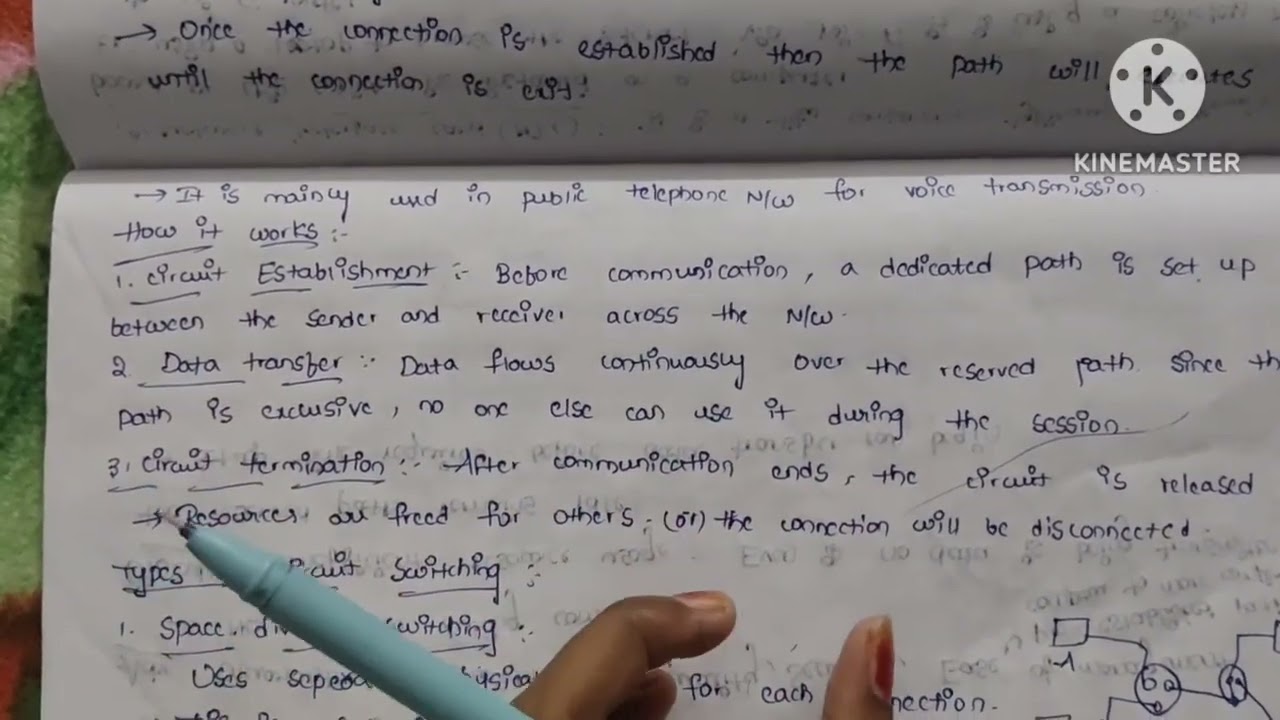 → Once the connection is established then the path will
until the connection is exit.
KINEMASTER
→ It is mainly used in public telephone N/W for voice transmission.
How it works :-
1. Circuit Establishment :- Before communication, a dedicated path is set up
between the sender and receiver across the N/W.
2 Data transfer :- Data flows continuously over the reserved path. Since th
path is exclusive, no one else can use it during the session.
3. Circuit termination :- After communication ends, the circuit is released
→ Resources are freed for others. (or) the connection will be disconnected.
Types Switching :-
1. Space switching :-
Uses for each